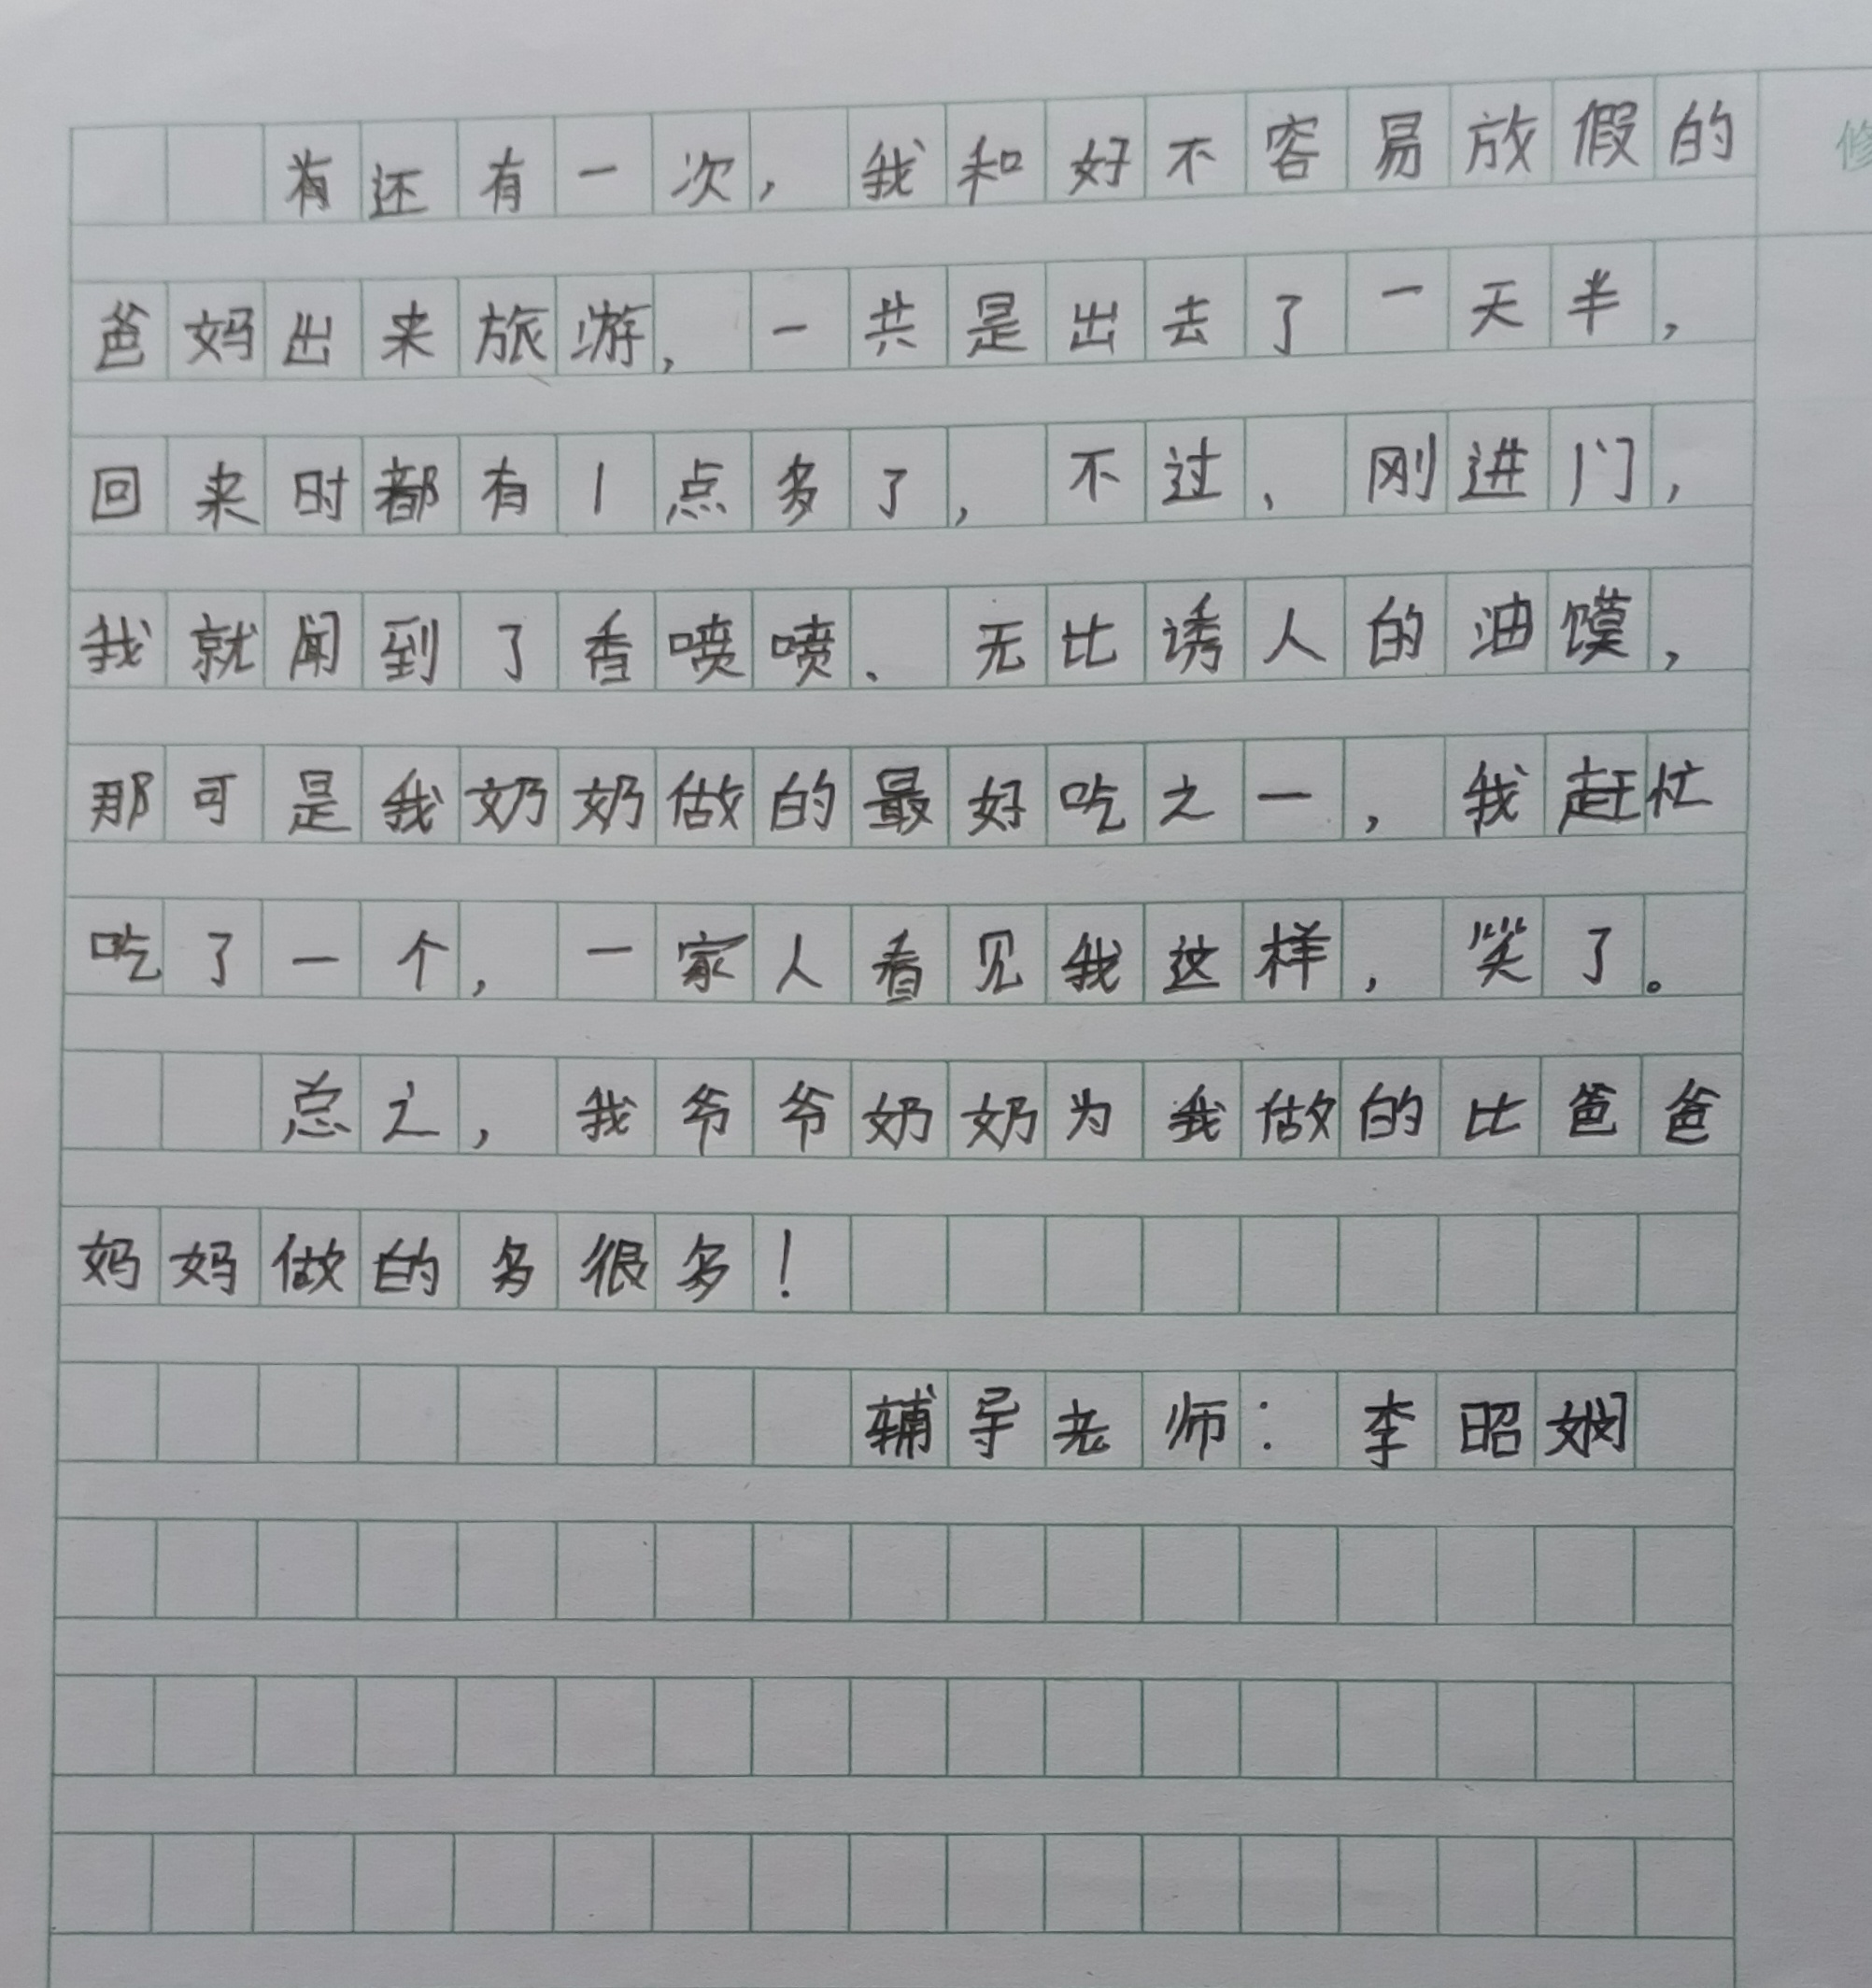 还有一次，我和好不容易放假的
爸妈出来旅游，一共是出去了一天半，
回来时都有1点多了，不过，刚进门，
我就闻到了香喷喷、无比诱人的油馍，
那可是我奶奶做的最好吃之一，我赶忙
吃了一个，一家人看见我这样，笑了。
总之，我爷爷奶奶为我做的比爸爸
妈妈做的多很多！
辅导老师：李昭娴